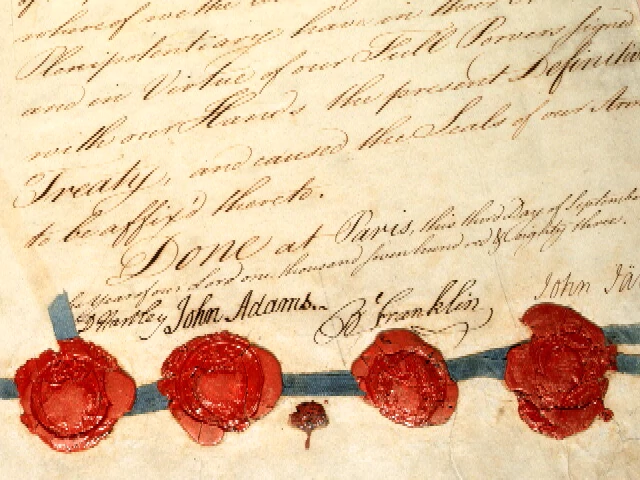 where of we the
Plenipotentiary have in their
and in Virtue of our Full Powers signed
with our Hands the present Definitive
Treaty, and caused the Seals of our Arms
to be affix'd thereto.
Done at Paris, this third Day of September
year of our Lord one thousand seven hundred & eighty three.
D Hartley John Adams. B Franklin John Jay